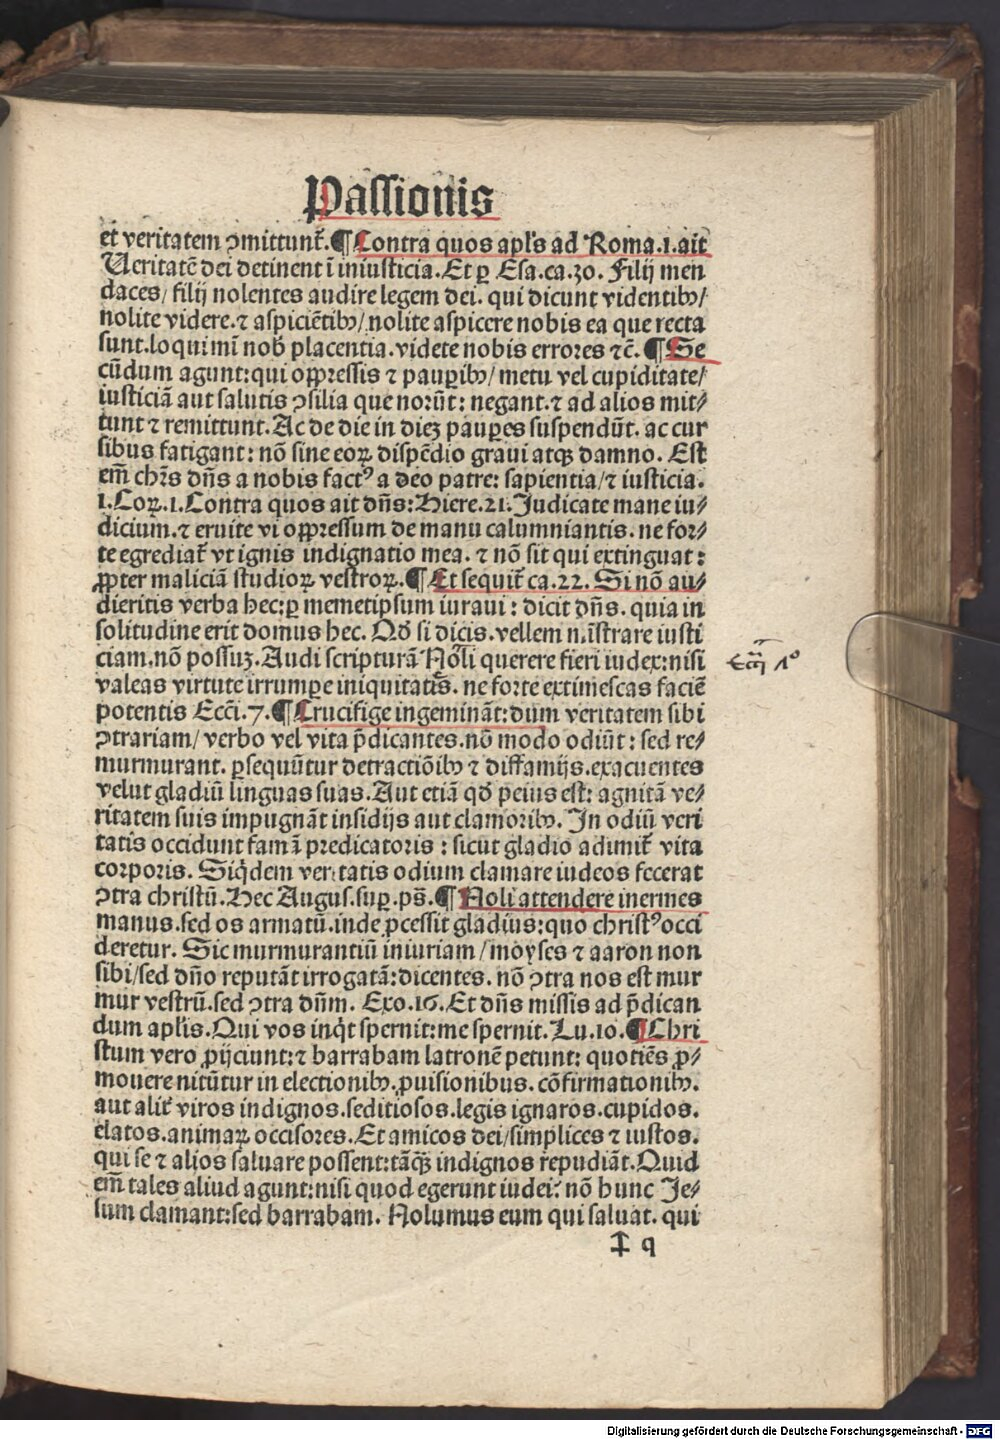 Passionis
et veritatem ꝯmittunt̃.¶Contra quos apl's ad Roma.1.ait
Veritatē dei detinent ī iniusticia.Et ꝑ Esa.ca.30. Filij men
daces/ filij nolentes audire legem dei. qui dicunt videntibꝰ/
nolite videre.⁊ aspiciētibꝰ/ nolite aspicere nobis ea que recta
sunt.loquimī nob̄ placentia.videte nobis errores ⁊c̄. ¶Se
cūdum agunt:qui oppressis ⁊ pauꝑibꝰ/ metu vel cupiditate/
iusticiā aut salutis ꝯsilia que norūt: negant.⁊ ad alios mit⸗
tunt ⁊ remittunt.Ac de die in dieꝫ pauꝑes suspendūt. ac cur
sibus fatigant: nō sine eoꝝ dispēdio graui atqꝫ damno. Est
em̄ chr̄s dn̄s a nobis factꝰ a deo patre: sapientia/⁊ iusticia.
1.Coꝝ.1.Contra quos ait dn̄s:Hiere.21.Judicate mane iu⸗
dicium.⁊ eruite vi oppressum de manu calumniantis. ne for⸗
te egrediat̃ vt ignis indignatio mea. ⁊ nō sit qui extinguat:
ꝓpter maliciā studioꝝ vestroꝝ.¶Et sequit̃ ca.22. Si nō au⸗
dieritis verba hec:ꝑ memetipsum iuraui: dicit dn̄s. quia in
solitudine erit domus hec. Qd̄ si dicis.vellem ministrare iusti
ciam.nō possuꝫ.Audi scripturā Noli querere fieri iudex:nisi
valeas virtute irrumpe iniquitatis. ne forte extimescas faciē
potentis Ecc̄i.7.¶Crucifige ingemināt:dum veritatem sibi
ꝯtrariam/ verbo vel vita p̄dicantes.nō modo odiūt: sed re⸗
murmurant. ꝑsequūtur detractiōibꝰ ⁊ diffamijs.exacuentes
velut gladiū linguas suas.Aut etiā qd̄ peius est: agnitā ve⸗
ritatem suis impugnāt insidijs aut clamoribꝰ. In odiū veri
tatis occidunt famā predicatoris: sicut gladio adimit̃ vita
corporis. Siqdem veritatis odium clamare iudeos fecerat
ꝯtra christū.Hec Augus.suꝑ.ps̄.¶Noli attendere inermes
manus.sed os armatū.inde ꝓcessit gladius:quo christꝰ occi
deretur. Sic murmurantiū iniuriam/moyses ⁊ aaron non
sibi/sed dn̄o reputāt irrogatā:dicentes. nō ꝯtra nos est mur
mur vestrū.sed ꝯtra dn̄m. Exo.16.Et dn̄s missis ad p̄dican
dum apl'is.Qui vos inq̇t spernit:me spernit.Lu.10.¶Chri
stum vero ꝓijciunt:⁊ barrabam latronē petunt: quotiēs ꝓ⸗
mouere nitūtur in electionibꝰ.ꝓuisionibus.cōfirmationibꝰ.
aut alit̃ viros indignos.seditiosos.legis ignaros.cupidos.
elatos.animaꝝ occisores.Et amicos dei/simplices ⁊ iustos.
qui se ⁊ alios saluare possent:tāqꝫ indignos repudiāt.Quid
em̄ tales aliud agunt:nisi quod egerunt iudei? nō hunc Je⸗
sum clamant:sed barrabam. Nolumus eum qui saluat. qui
‡ q
Digitalisierung gefördert durch die Deutsche Forschungsgemeinschaft - DFG